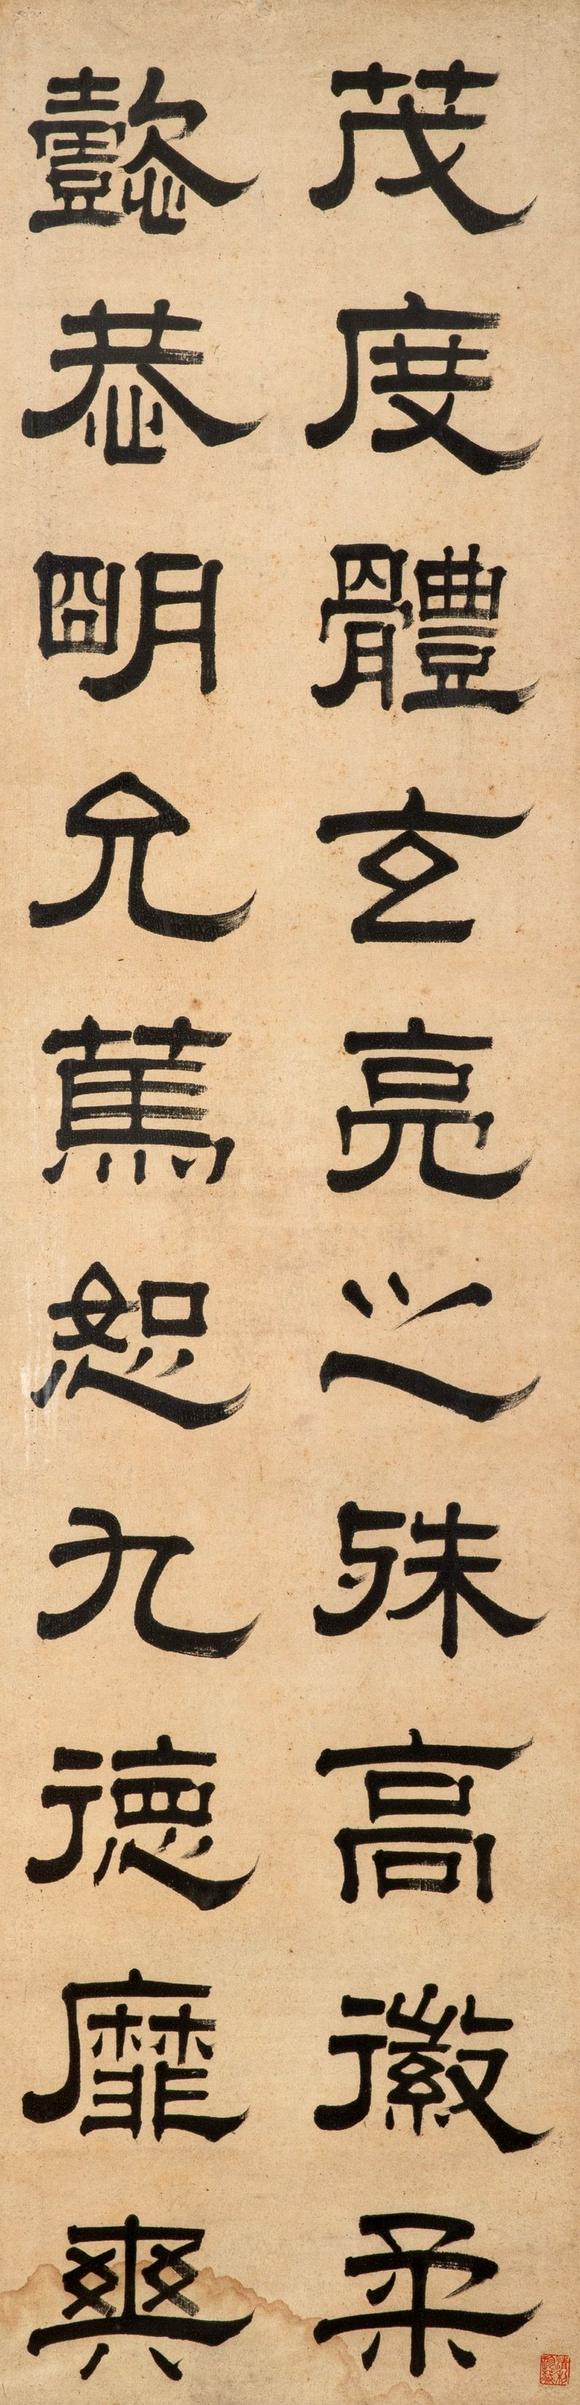 茂度體玄亮之殊高徽柔
懿恭明允篤恕九德靡爽